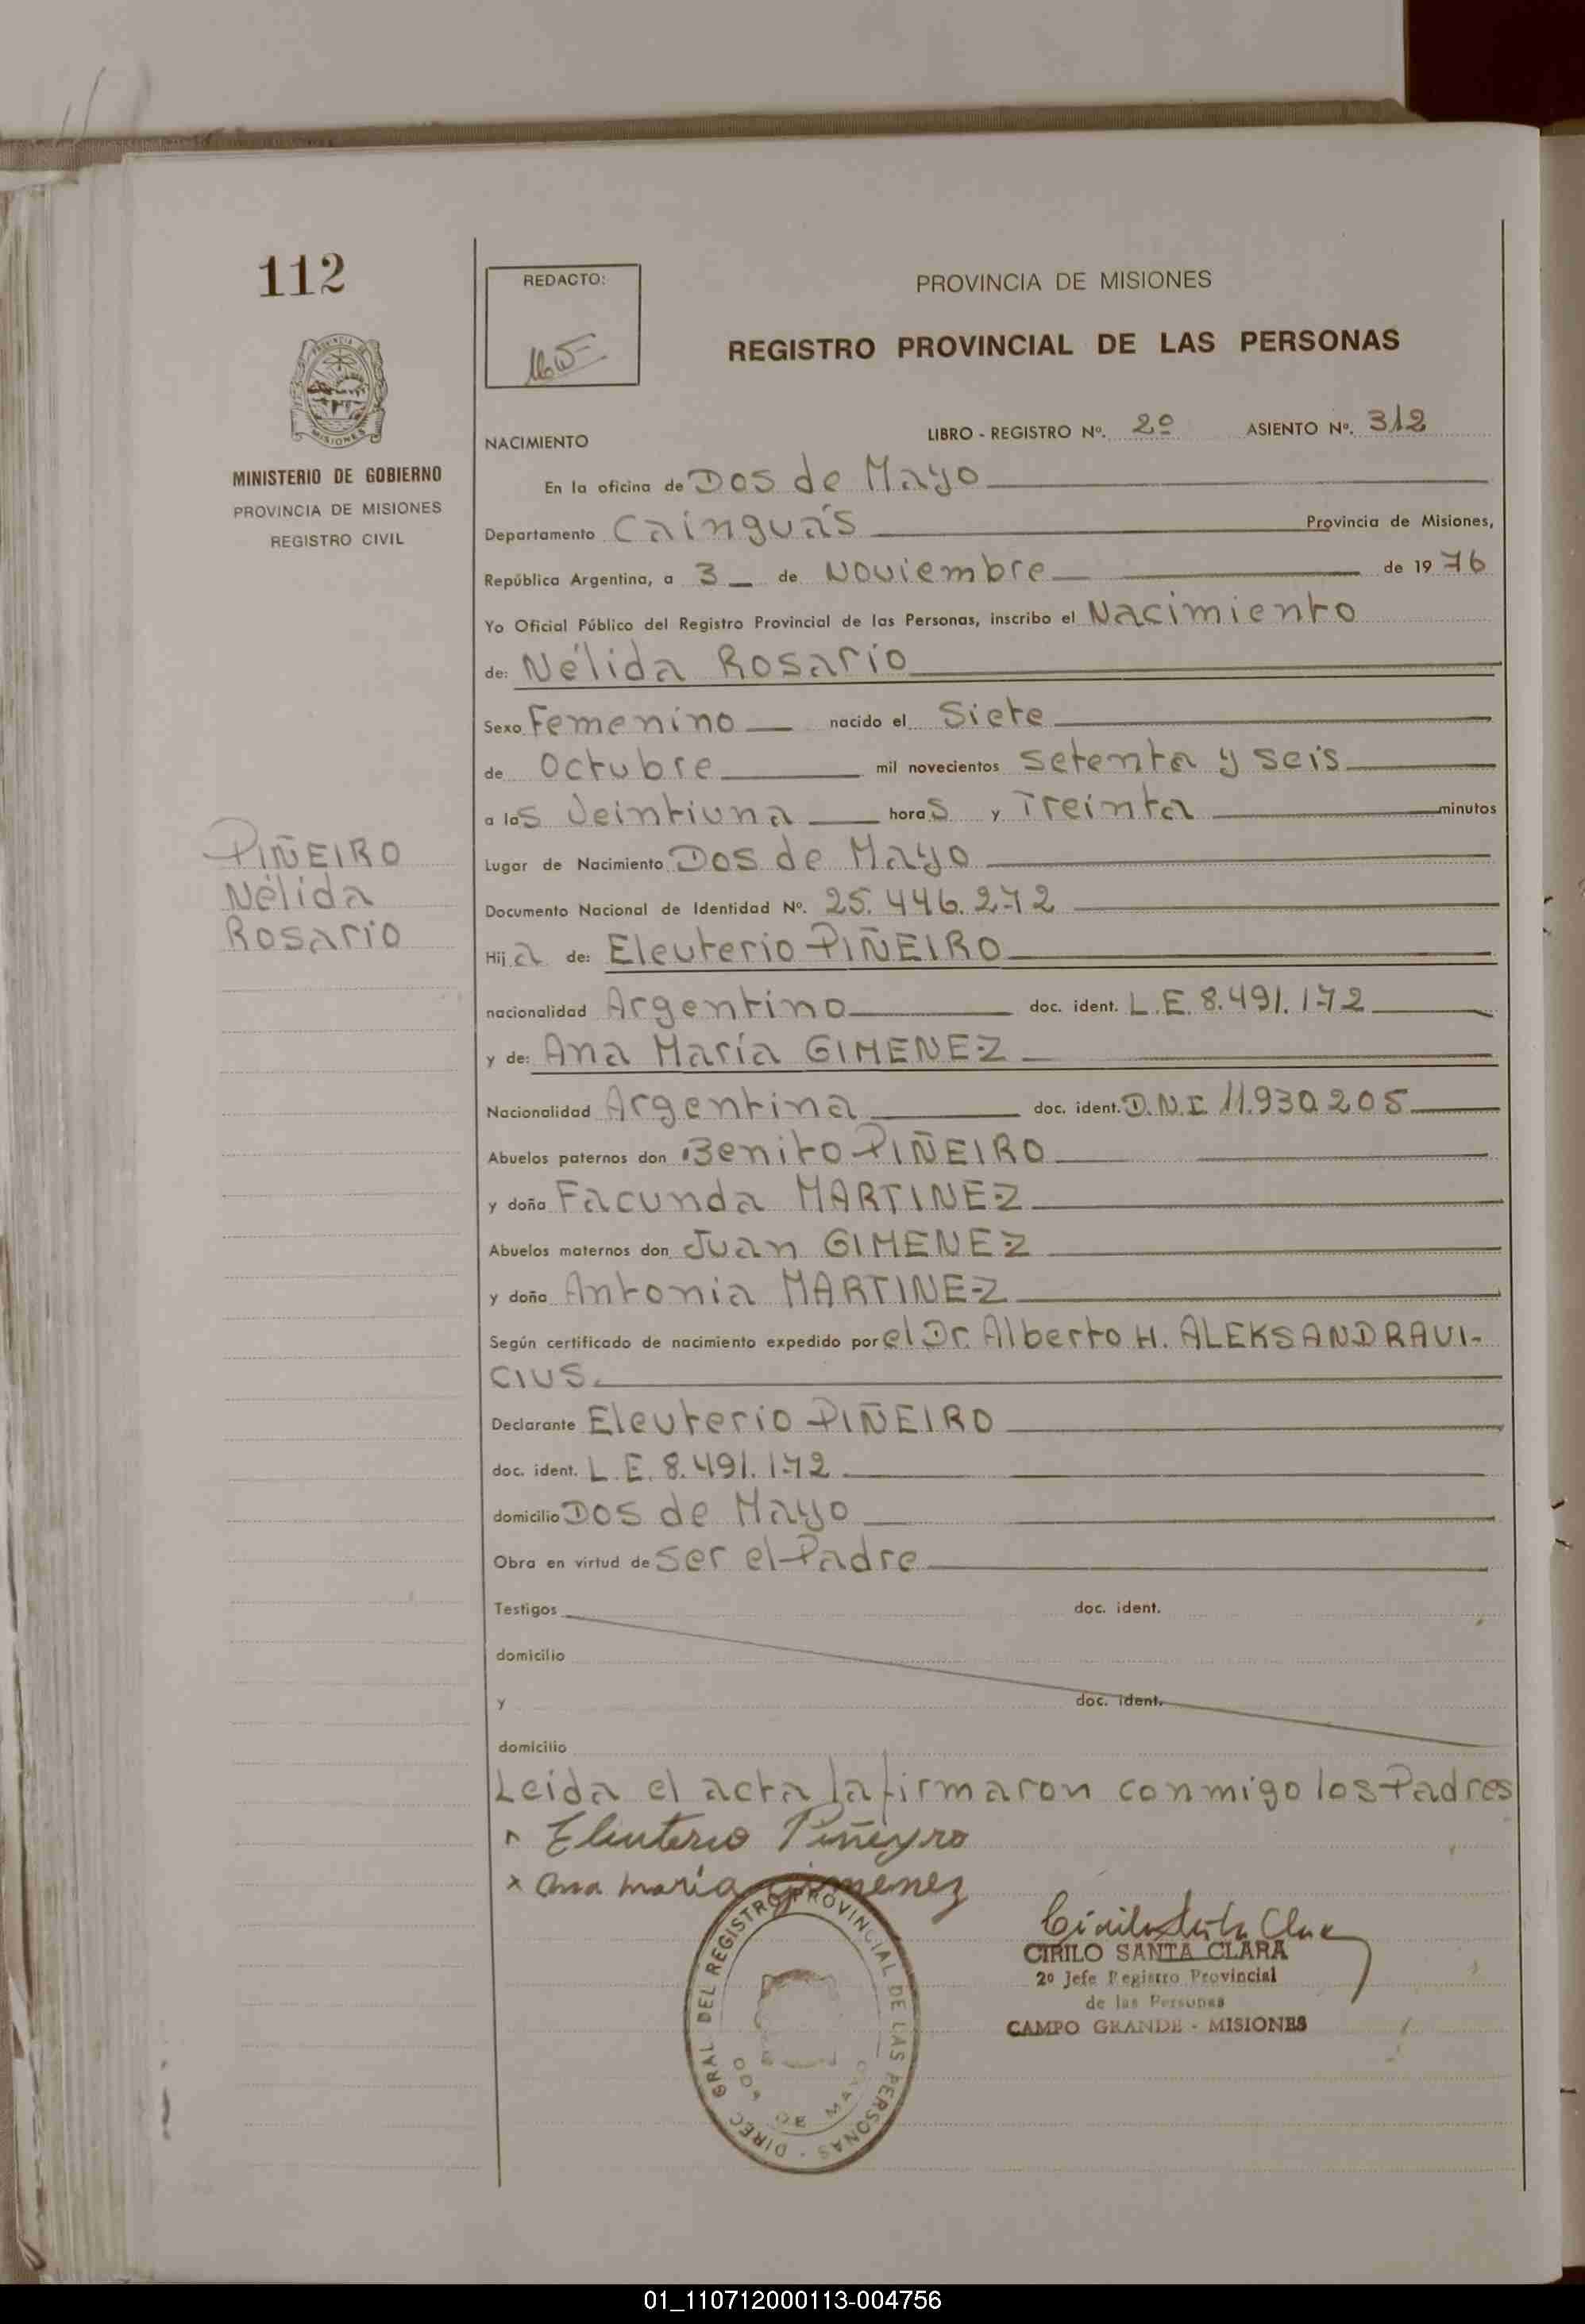 112
MINISTERIO DE GOBIERNO
PROVINCIA DE MISIONES
REGISTRO CIVIL
PIÑEIRO
Nélida
Rosario
REDACTO:
PROVINCIA DE MISIONES
REGISTRO PROVINCIAL DE LAS PERSONAS
NACIMIENTO LIBRO - REGISTRO Nº. 2º ASIENTO Nº. 312
En la oficina de Dos de Mayo
Departamento Cainguás Provincia de Misiones,
República Argentina, a 3 de Noviembre de 1976
Yo Oficial Público del Registro Provincial de las Personas, inscribo el Nacimiento
de: Nélida Rosario
Sexo Femenino nacido el Siete
de Octubre mil novecientos setenta y seis
a las Veintiuna horas y Treinta minutos
Lugar de Nacimiento Dos de Mayo
Documento Nacional de Identidad Nº. 25.446.272
Hija de: Eleuterio PIÑEIRO
nacionalidad Argentino doc. ident. L.E. 8.491.172
y de: Ana María GIMENEZ
Nacionalidad Argentina doc. ident. D.N.I. 11.930.205
Abuelos paternos don Benito PIÑEIRO
y doña Facunda MARTINEZ
Abuelos maternos don Juan GIMENEZ
y doña Antonia MARTINEZ
Según certificado de nacimiento expedido por el Dr. Alberto H. ALEKSANDRAVI-
CIUS.
Declarante Eleuterio PIÑEIRO
doc. ident. L.E. 8.491.172
domicilio Dos de Mayo
Obra en virtud de ser el Padre
Testigos doc. ident.
domicilio
y doc. ident.
domicilio
Leida el acta la firmaron conmigo los Padres
Eleuterio Piñeyro
x Ana maría Gimenez
Cirilo Santa Clara
CIRILO SANTA CLARA
2º Jefe Registro Provincial
de las Personas
CAMPO GRANDE - MISIONES
DIREC. GRAL. DEL REGISTRO PROVINCIAL DE LAS PERSONAS
DE MAYO
01_110712000113-004756